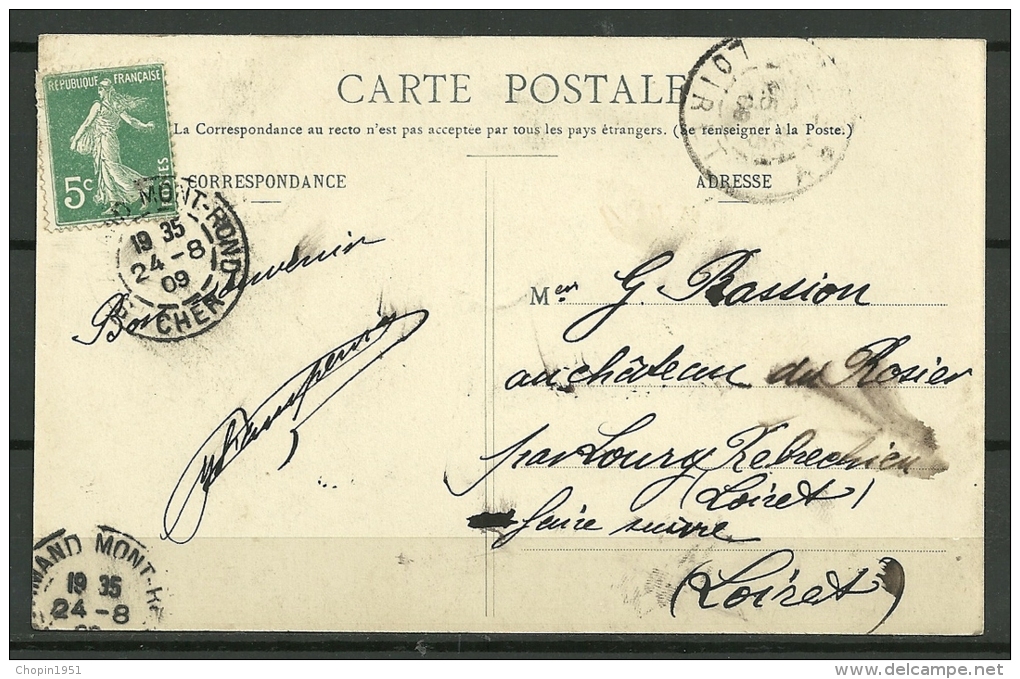 RÉPUBLIQUE FRANÇAISE
5c
CARTE POSTALE
La Correspondance au recto n'est pas acceptée par tous les pays étrangers. (Se renseigner à la Poste.)
CORRESPONDANCE
ADRESSE
MONT-ROND
19 35
24-8
09
CHER
LOIRET
Bon souvenir
Meur G. Bassion
au château du Rosier
par Loury Rebrechien
(Loiret)
faire suivre
(Loiret)
MAND MONT-R
19 35
24-8
Chopin1951
delcampe.net